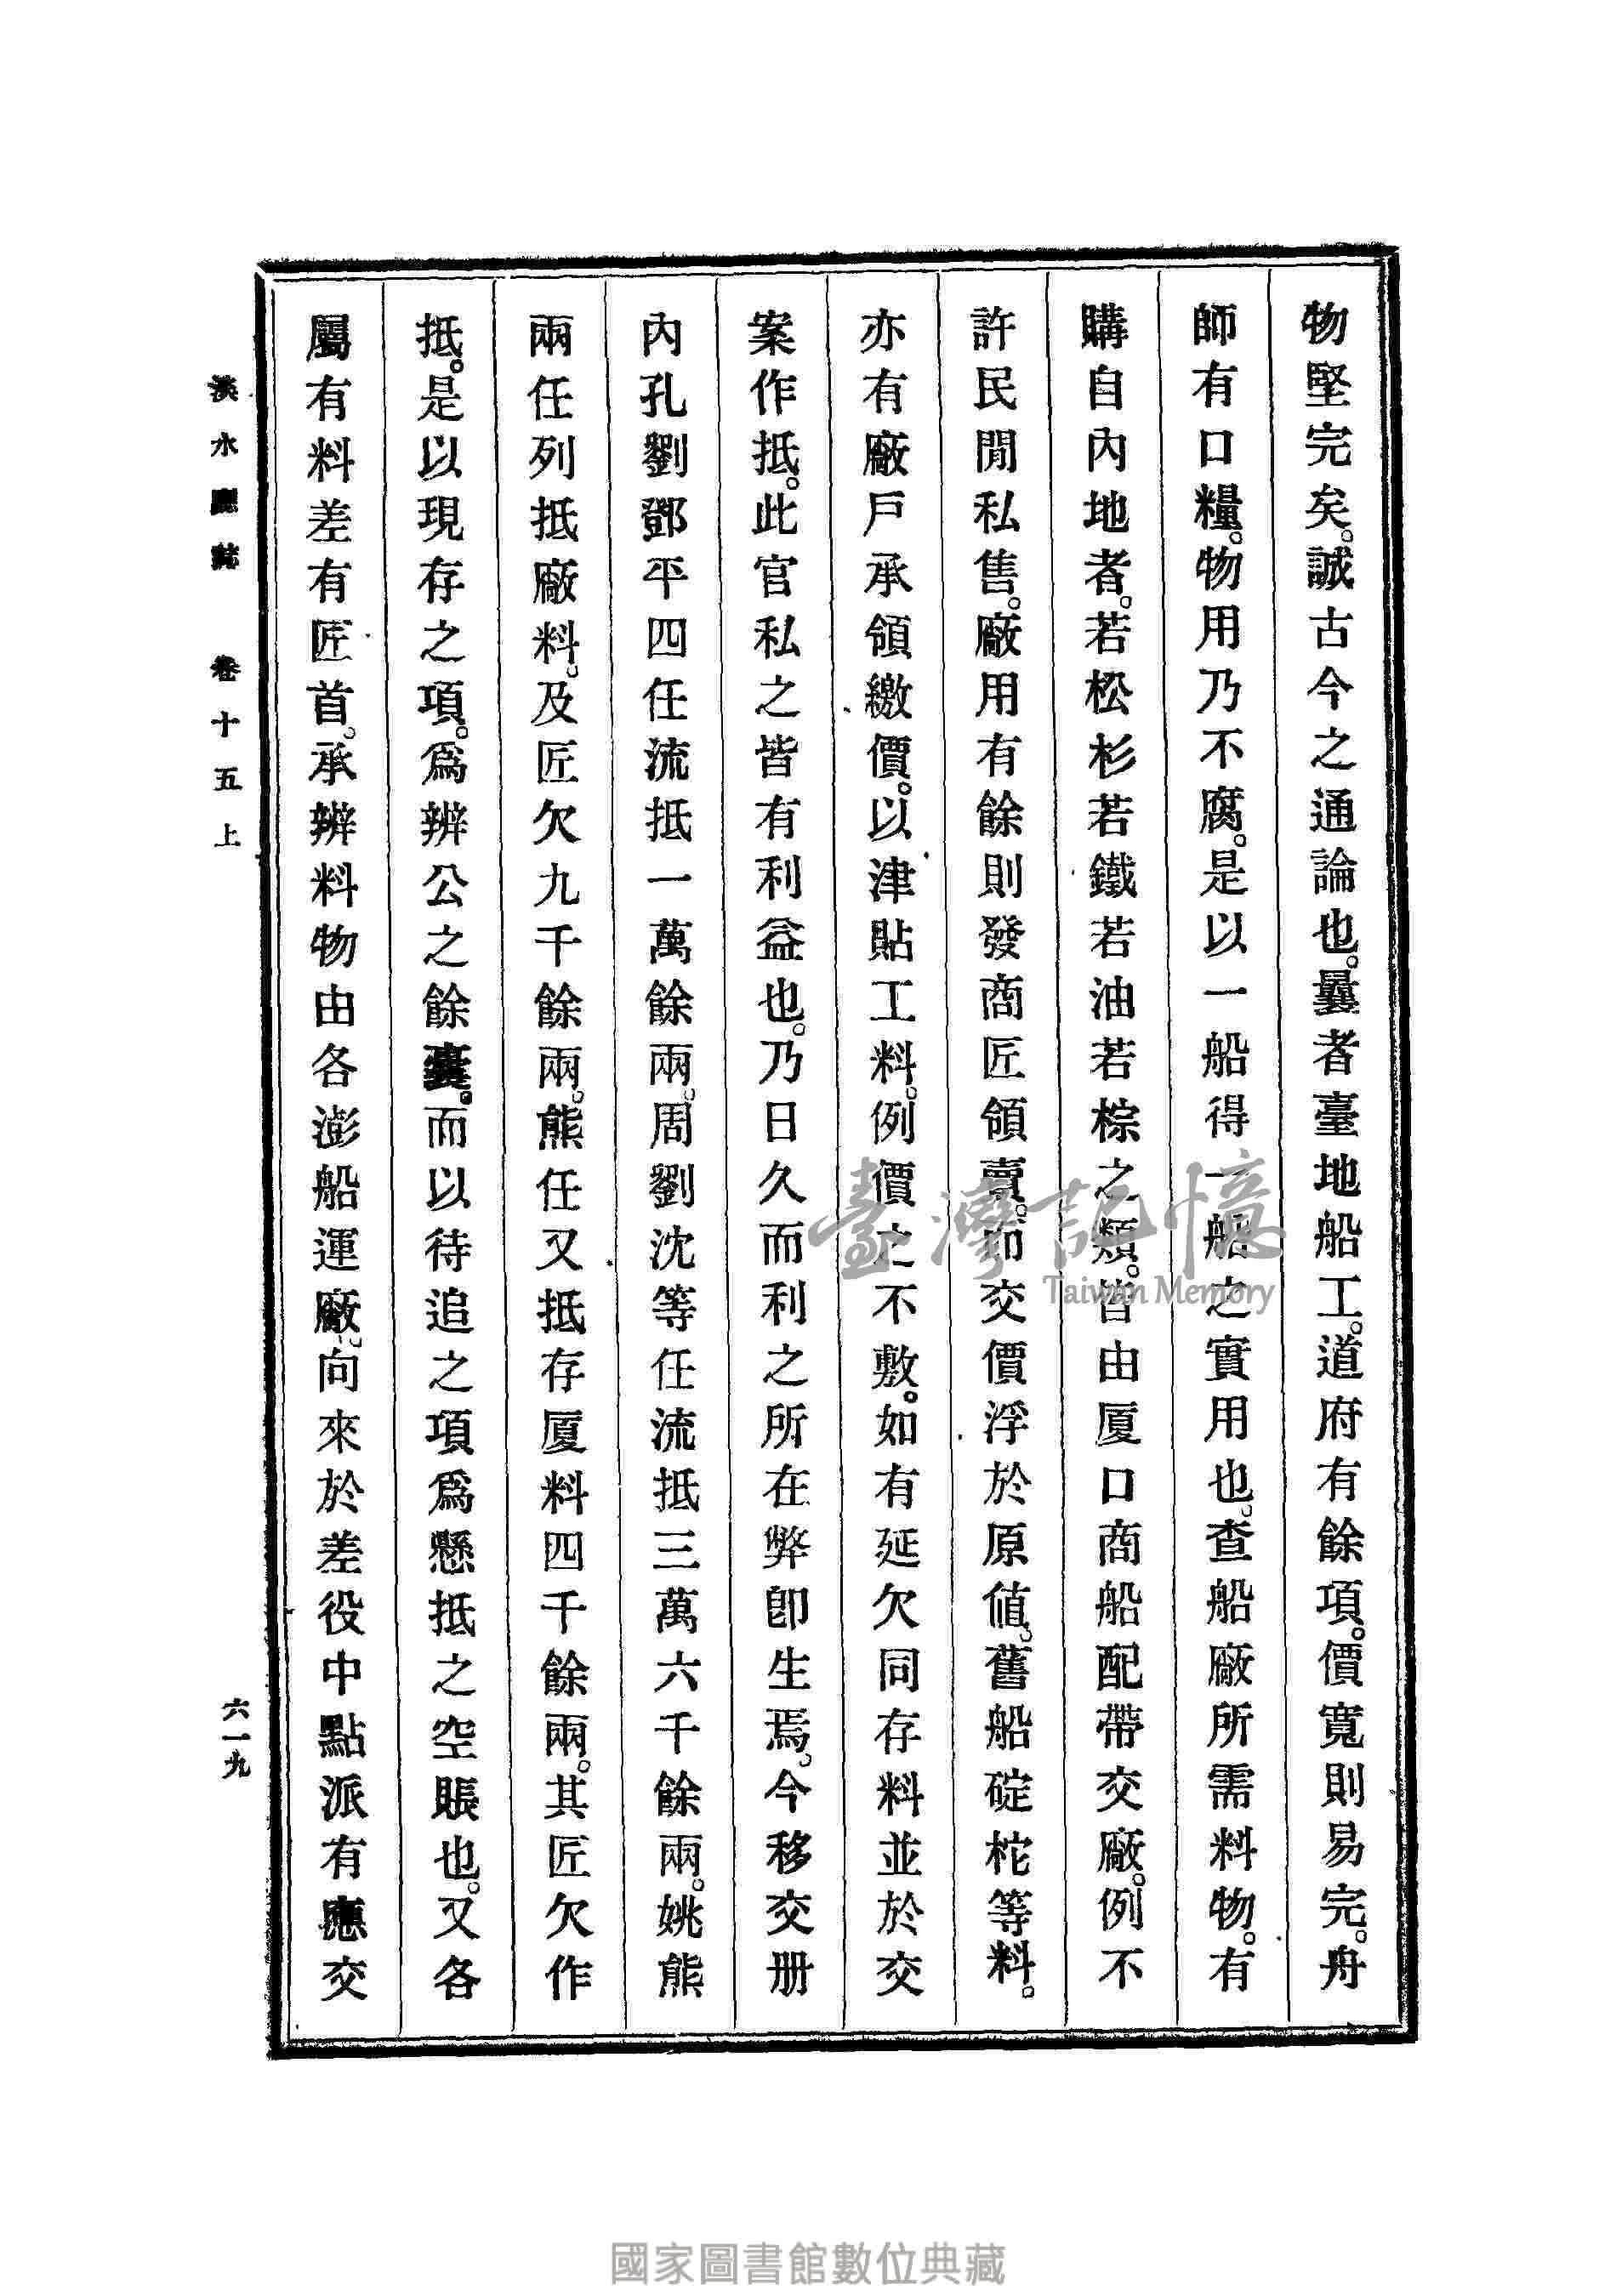 物堅完矣。誠古今之通論也。曩者臺地船工。道府有餘項。價寬則易完。舟
師有口糧。物用乃不腐。是以一船得一船之實用也。查船廠所需料物。有
購自內地者。若松杉若鐵若油若棕之類。皆由厦口商船配帶交廠。例不
許民間私售。廠用有餘則發商匠領賣。卽交價浮於原値。舊船碇柁等料。
亦有廠戶承領繳價。以津貼工料。例價之不敷。如有延欠同存料並於交
案作抵。此官私之皆有利益也。乃日久而利之所在弊卽生焉。今移交册
內孔劉鄧平四任流抵一萬餘兩。周劉沈等任流抵三萬六千餘兩。姚熊
兩任列抵廠料。及匠欠九千餘兩。熊任又抵存厦料四千餘兩。其匠欠作
抵。是以現存之項。爲辨公之餘囊。而以待追之項爲懸抵之空賬也。又各
屬有料差有匠首。承辨料物由各澎船運廠。向來於差役中點派有應交
淡水廳誌 卷十五上
六一九
臺灣記憶
Taiwan Memory
國家圖書館數位典藏